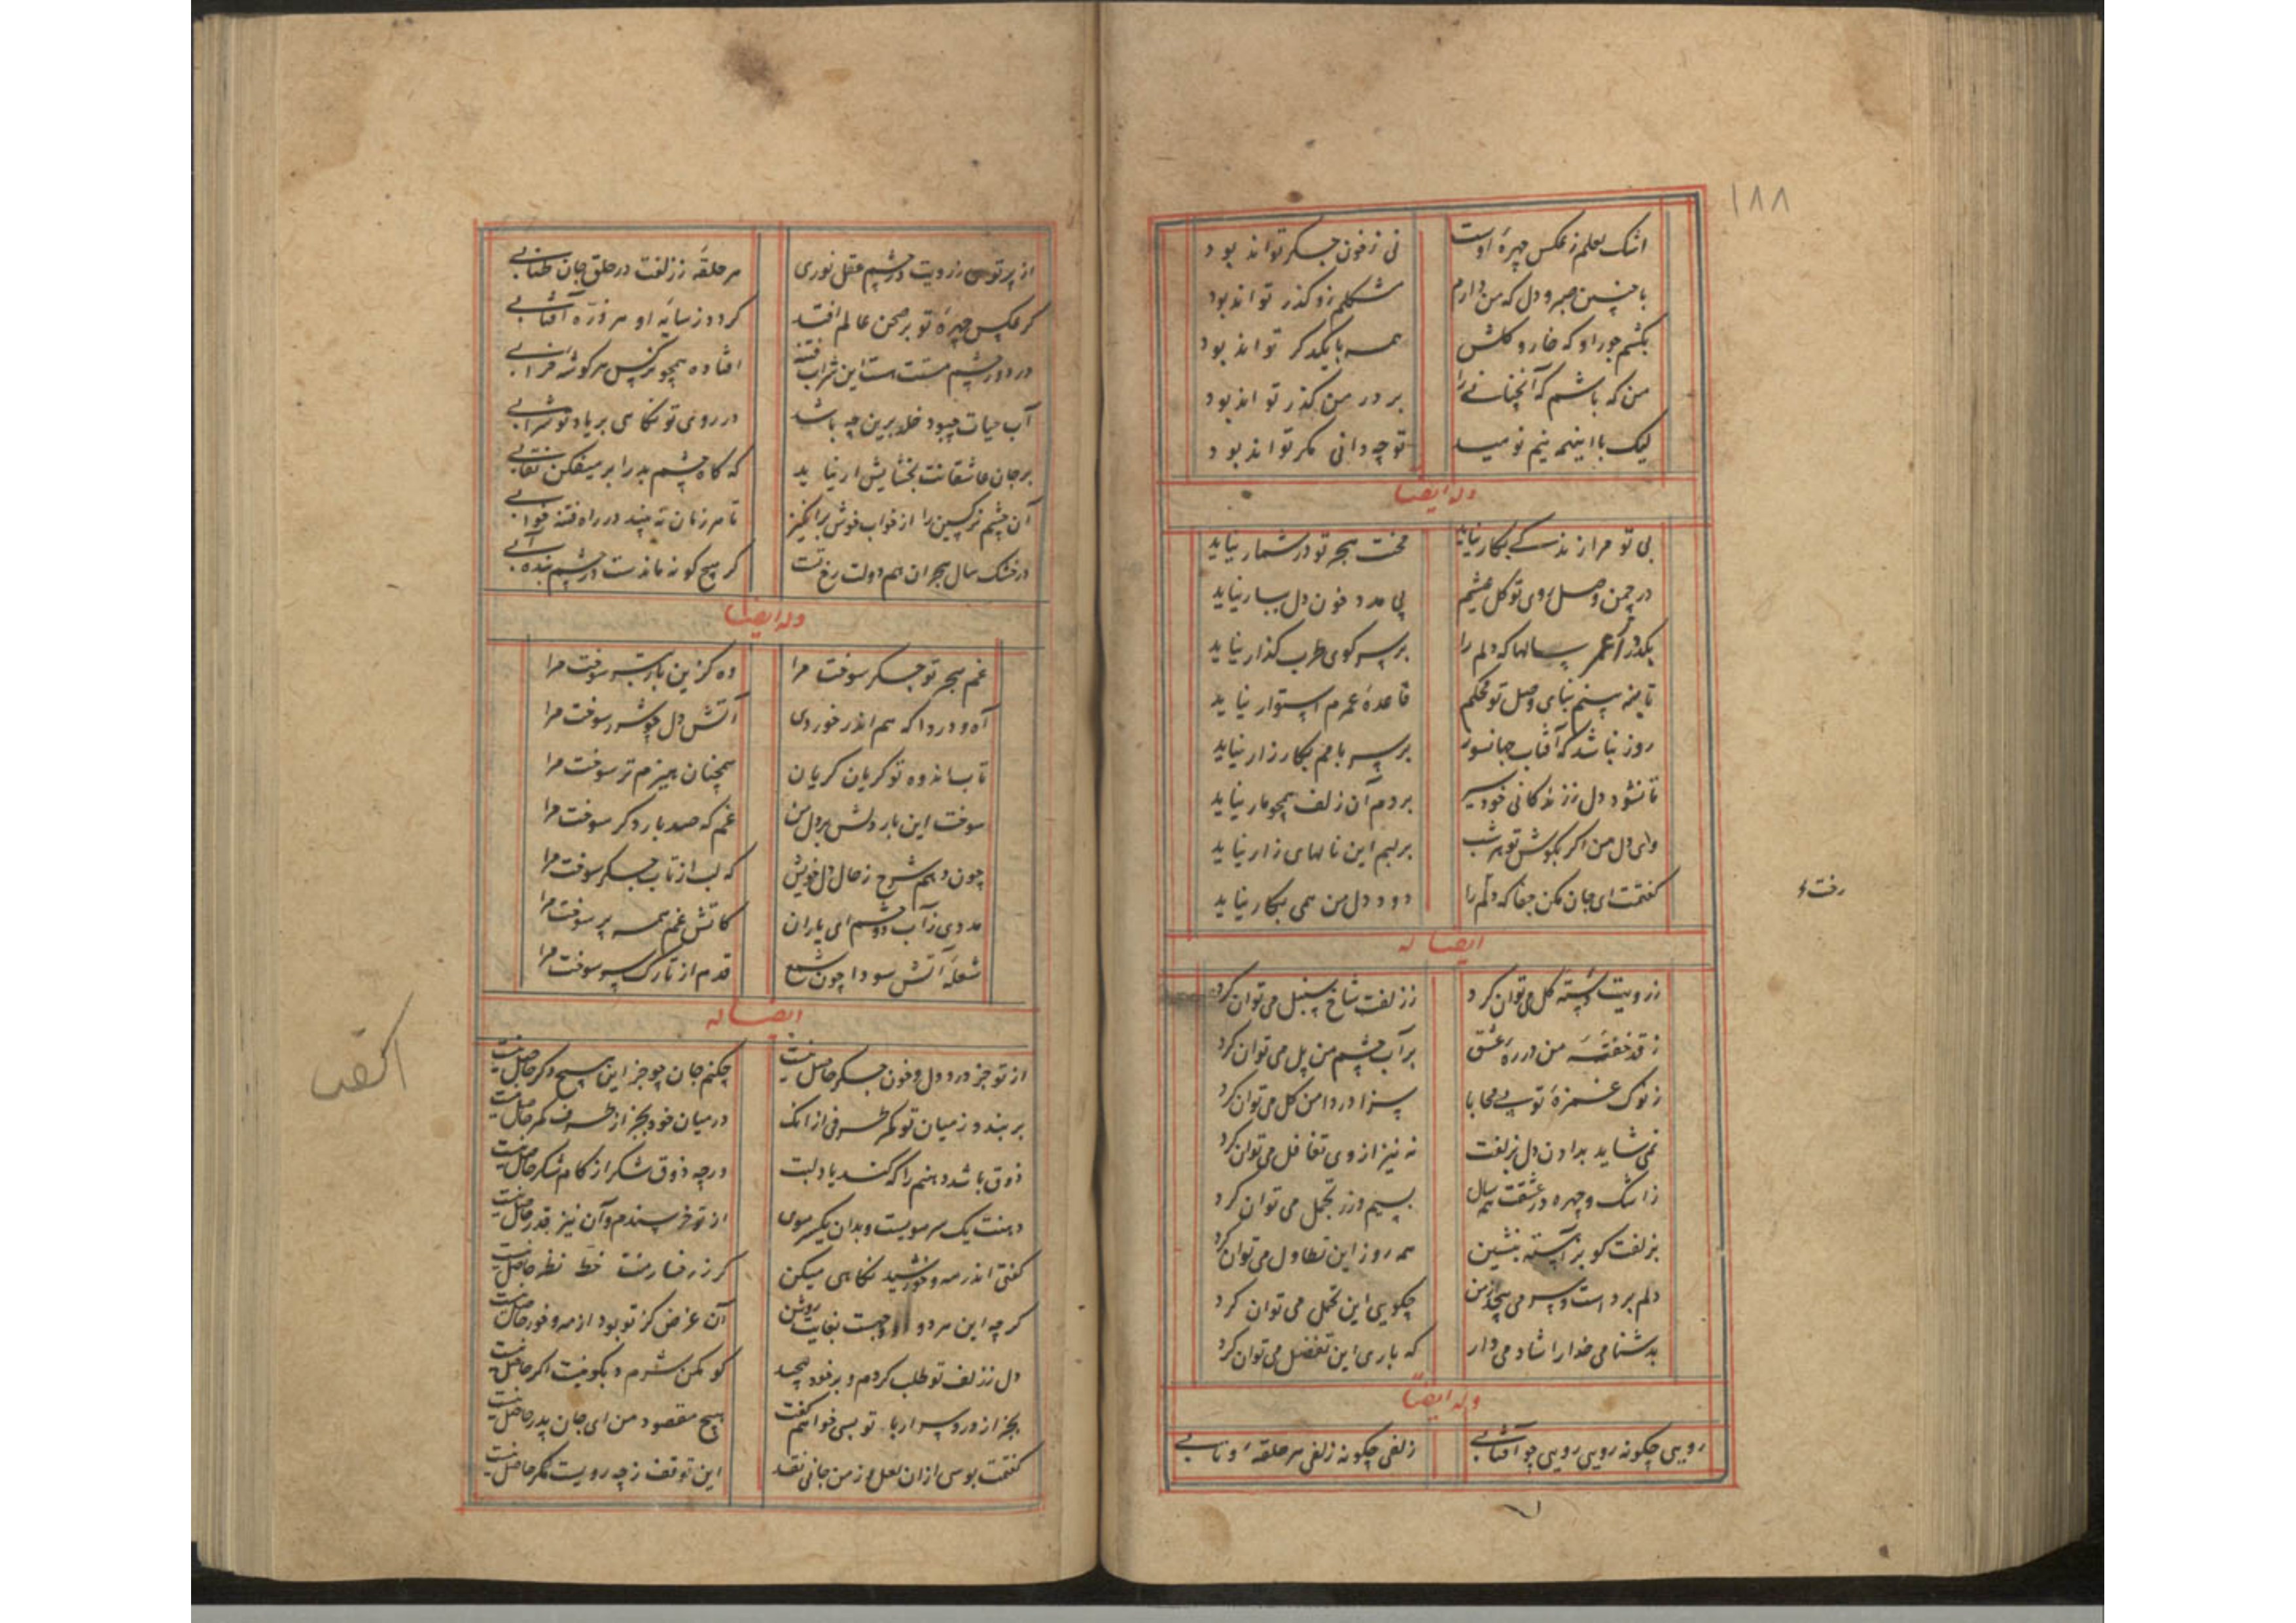 ۱۸۸
اشک لعلم ز عکس چهرهٔ اوست نی ز خون جکر تواند بود
با چنین صبر و دل که من دارم مشکلم زو کذر تواند بود
بکشم جور او که خار و کلش همه با یکدکر تواند بود
من که باشم که آنچنانی را بر در من کذر تواند بود
لیک با اینهمه نیم نومید تو چه دانی مکر تواند بود
وله ایضا
بی تو مرا زندکی بکار نیاید محنت هجر تو در شمار نیاید
در چمن وصل روی تو کل عیشم بی مدد خون دل ببار نیاید
بکذرد از عمر سالها که دلم را بر سر کوی طرب کذار نیاید
تا ننهد بینم بنای وصل تو محکم قاعدهٔ عمرم استوار نیاید
روز نباشد که آفتاب جهانسوز بر سر بامم بکارزار نیاید
تا نشود دل ز زندکانی خود سیر بر دم آن زلف همچو مار نیاید
وای دل من اکر بکوش تو هر شب بر لبم این نالهای زار نیاید
کفتمت ای جان مکن جفا که دلم را دود دل من همی بکار نیاید
رفتهٔ
ایضا له
ز رویت دسته کل می توان کرد ز زلفت شاخ سنبل می توان کرد
ز قد خفتهٔ من در ره عشق بر آب چشم من پل می توان کرد
ز نوک غمزهٔ تو بی محابا سزا در دامن کل می توان کرد
نمی شاید بدادن دل بزلفت نه نیز از وی تغافل می توان کرد
ز اشک و چهره در عشقت همه سال بسیم و زر تجمل می توان کرد
بزلفت کو بز آهسته بنشین همه روز این تطاول می توان کرد
دلم بردست و سر می پیچد از من چکویی این تحمل می توان کرد
بدشنامی خدا را شاد می دار که باری این تفضل می توان کرد
وله ایضاً
رویی چکونه رویی رویی چو آفتابی زلفی چکونه زلفی هر حلقهٔ و تابی
از پرتوی ز رویت در چشم عقل نوری هر حلقهٔ ز زلفت در حلق جان طنابی
کر عکس چهرهٔ تو بر صحن عالم افتد کردد ز سایهٔ او هر ذره آفتابی
در دور چشم مستت هست این شراب فتنه افتاده همچو نرکس هر کوشهٔ خرابی
آب حیات چبود خلد برین چه باشد در روی تو نکاهی بر یاد تو شرابی
بر جان عاشقانت بخشایش ار نیاید که کاه چشم بد را بر میفکن نقابی
آن چشم نرکسین را از خواب خوش برانکیز تا هر زمان نه بیند در راه فتنه خوابی
در خشک سال هجران هم دولت رخ تست کر هیچ کونه ماندست در چشم بنده آبی
وله ایضا
غم هجر تو جکر سوخت مرا وه کزین بار بتر سوخت مرا
آه و دردا که هم اندر خوردی آتش دل چو شرر سوخت مرا
تاب اندوه تو کریان کریان همچنان هیزم تر سوخت مرا
سوخت این بار دلش بر دل من غم که صد بار دکر سوخت مرا
چون دهم شرح ز حال دل خویش که لب از تاب جکر سوخت مرا
مددی ز آب دو چشم ای یاران کاتش غم همه پر سوخت مرا
شعلهٔ آتش سودا چون شمع قدم از تارک سر سوخت مرا
ایضا له
از تو جز درد دل و خون جکر حاصل نیست چکنم جان چو جز این هیچ دکر حاصل نیست
بر نبندد ز میان تو کمر طرفی از انک در میان خود بجز از طرف کمر حاصل نیست
ذوق باشد دهنم را که کند یاد لبت ورچه ذوق شکر از کام شکر حاصل نیست
دهنت یک سر مویست و بدان یکسر موی از تو خرسندم و آن نیز قدر حاصل نیست
کفتی اندر مه و خورشید نکاهی میکن کر ز رخسار منت خط نظر حاصل نیست
کرچه این هر دو بغایت روشن آن غرض کز تو بود از مه و خور حاصل نیست
دل ز زلف تو طلب کردم و بر خود پیچید کو مکن شرم و بکو نیست اکر حاصل نیست
بجز از درد سر از بهر تو بسی خواهم کفت هیچ مقصود من ای جان پدر حاصل نیست
کفتمت بوسی ازان لعل و ز من جانی نقد این توقف ز چه رویست مکر حاصل نیست